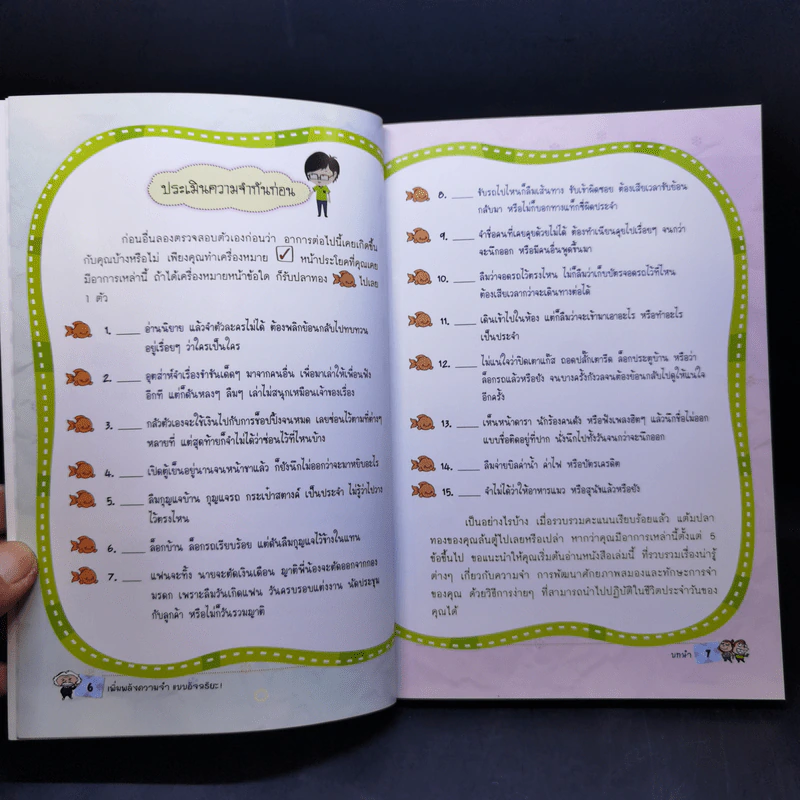 ประเมินความจำกันก่อน
ก่อนอื่นลองตรวจสอบตัวเองก่อนว่า อาการต่อไปนี้เคยเกิดขึ้น
กับคุณบ้างหรือไม่ เพียงคุณทำเครื่องหมาย ✓ หน้าประโยคที่คุณเคย
มีอาการเหล่านี้ ถ้าได้เครื่องหมายหน้าข้อใด ก็รับปลาทอง ไปเลย
1 ตัว
1. ____ อ่านนิยาย แล้วจำตัวละครไม่ได้ ต้องพลิกย้อนกลับไปทบทวน
อยู่เรื่อยๆ ว่าใครเป็นใคร
2. ____ อุตส่าห์จำเรื่องขำขันเด็ดๆ มาจากคนอื่น เพื่อมาเล่าให้เพื่อนฟัง
อีกที แต่ก็ดันหลงๆ ลืมๆ เล่าไม่สนุกเหมือนเจ้าของเรื่อง
3. ____ กลัวตัวเองจะใช้เงินไปกับการช็อปปิ้งจนหมด เลยซ่อนไว้ตามที่ต่างๆ
หลายที่ แต่สุดท้ายก็จำไม่ได้ว่าซ่อนไว้ที่ไหนบ้าง
4. ____ เปิดตู้เย็นอยู่นานจนหน้าชาแล้ว ก็ยังนึกไม่ออกว่าจะมาหยิบอะไร
5. ____ ลืมกุญแจบ้าน กุญแจรถ กระเป๋าสตางค์ เป็นประจำ ไม่รู้ว่าไปวาง
ไว้ตรงไหน
6. ____ ล็อกบ้าน ล็อกรถเรียบร้อย แต่ดันลืมกุญแจไว้ข้างในแทน
7. ____ แฟนจะทิ้ง นายจะตัดเงินเดือน ญาติพี่น้องจะตัดออกจากกอง
มรดก เพราะลืมวันเกิดแฟน วันครบรอบแต่งงาน นัดประชุม
กับลูกค้า หรือไม่ก็วันรวมญาติ
6 เพิ่มพลังความจำ แบบอัจฉริยะ!
8. ____ ขับรถไปไหนก็ลืมเส้นทาง ขับเข้าผิดซอย ต้องเสียเวลาขับย้อน
กลับมา หรือไม่ก็บอกทางแท็กซี่ผิดประจำ
9. ____ จำชื่อคนที่เคยคุยด้วยไม่ได้ ต้องทำเนียนคุยไปเรื่อยๆ จนกว่า
จะนึกออก หรือมีคนอื่นพูดขึ้นมา
10. ____ ลืมว่าจอดรถไว้ตรงไหน ไม่ก็ลืมว่าเก็บบัตรจอดรถไว้ที่ไหน
ต้องเสียเวลากว่าจะเดินทางต่อได้
11. ____ เดินเข้าไปในห้อง แต่ก็ลืมว่าจะเข้ามาเอาอะไร หรือทำอะไร
เป็นประจำ
12. ____ ไม่แน่ใจว่าปิดเตาแก๊ส ถอดปลั๊กเตารีด ล็อกประตูบ้าน หรือว่า
ล็อกรถแล้วหรือยัง จนบางครั้งกังวลจนต้องย้อนกลับไปดูให้แน่ใจ
อีกครั้ง
13. ____ เห็นหน้าดารา นักร้องคนดัง หรือฟังเพลงฮิตๆ แล้วนึกชื่อไม่ออก
แบบชื่อติดอยู่ที่ปาก นั่งนึกไปทั้งวันจนกว่าจะนึกออก
14. ____ ลืมจ่ายบิลค่าน้ำ ค่าไฟ หรือบัตรเครดิต
15. ____ จำไม่ได้ว่าให้อาหารแมว หรือสุนัขแล้วหรือยัง
เป็นอย่างไรบ้าง เมื่อรวบรวมคะแนนเรียบร้อยแล้ว แต้มปลา
ทองของคุณล้นตู้ไปเลยหรือเปล่า หากว่าคุณมีอาการเหล่านี้ตั้งแต่ 5
ข้อขึ้นไป ขอแนะนำให้คุณเริ่มต้นอ่านหนังสือเล่มนี้ ที่รวบรวมเรื่องน่ารู้
ต่างๆ เกี่ยวกับความจำ การพัฒนาศักยภาพสมองและทักษะการจำ
ของคุณ ด้วยวิธีการง่ายๆ ที่สามารถนำไปปฏิบัติในชีวิตประจำวันของ
คุณได้
บทนำ 7